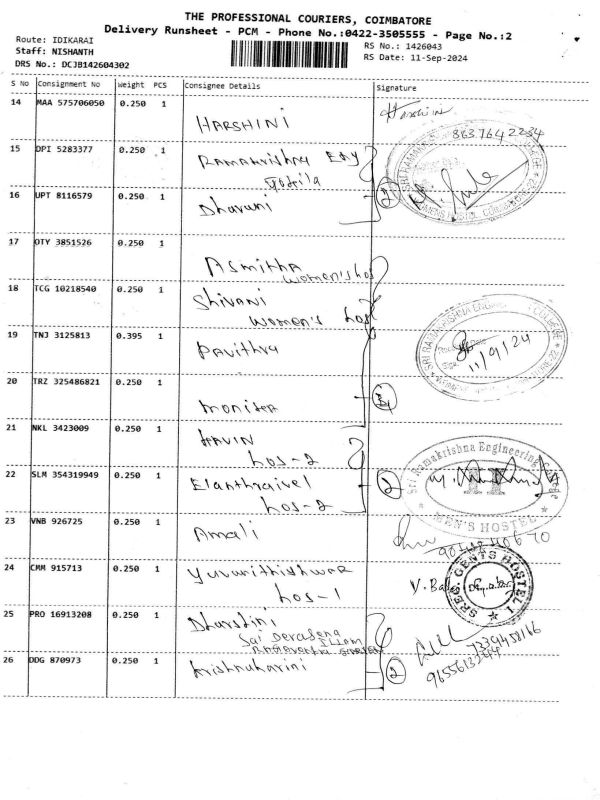 THE PROFESSIONAL COURIERS, COIMBATORE
Delivery Runsheet - PCM - Phone No.:0422-3505555 - Page No.:2
Route: IDIKARAI
Staff: NISHANTH
DRS No.: DCJB142604302
RS No.: 1426043
RS Date: 11-Sep-2024
S No Consignment No Weight PCS Consignee Details Signature
14 MAA 575706050 0.250 1 HARSHINI
8637642234
15 DPI 5283377 0.250 1 Ramakrishna
16 UPT 8116579 0.250 1 Dharuni
2
17 OTY 3851526 0.250 1 Asmitha
women's hos
18 TCG 10218540 0.250 1 Shivani
women's hos
19 TNJ 3125813 0.395 1 Pavithra
11/9/24
20 TRZ 325486821 0.250 1 monisha
21 NKL 3423009 0.250 1
hos-2
22 SLM 354319949 0.250 1 Elanthraivel
hos-2
2
Sri Ramakrishna Engineering College
MEN'S HOSTEL
23 VNB 926725 0.250 1 Amali
24 CMM 915713 0.250 1
hos-1
SREC GENTS HOSTEL
25 PRO 16913208 0.250 1 Dharshini
Sai
7339458166
26 DDG 870973 0.250 1 Krishnaharini
2